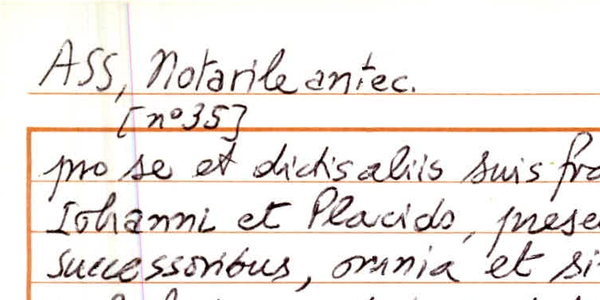 ASS, Notarile antec.
[n° 35]
pro se et dictis aliis suis fra
Iohanni et Placido, prese
successoribus, omnia et si